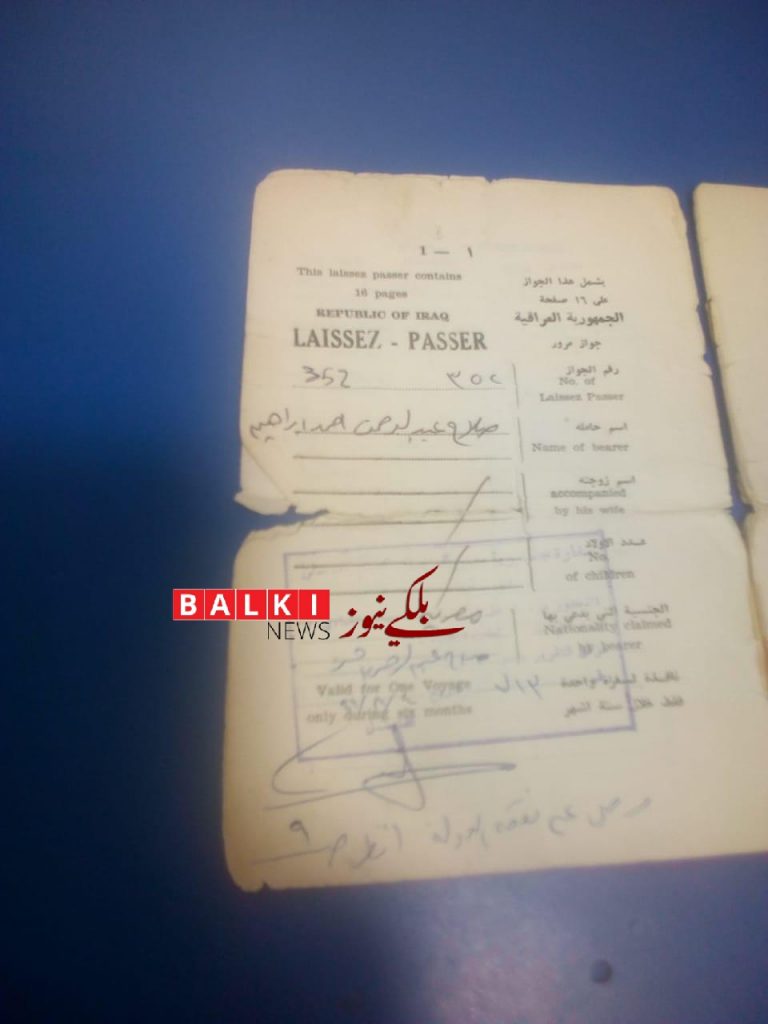 1 — ١
This laissez passer contains
16 pages
يشمل هذا الجواز
على ١٦ صفحة
REPUBLIC OF IRAQ
الجمهورية العراقية
LAISSEZ - PASSER
جواز مرور
352
٣٥٢
رقم الجواز
No. of
Laissez Passer
صلاح عبد الرحمن احمد ابراهيم
اسم حامله
Name of bearer
اسم زوجته
accompanied
by his wife
عدد الاولاد
No.
of children
BALKI
NEWS
بلکے نیوز
الجنسية التي يدعي بها
Nationality claimed
by bearer
Valid for One Voyage
only during six months
نافذة لسفرة واحدة
فقط خلال ستة اشهر
على نفقة الدولة